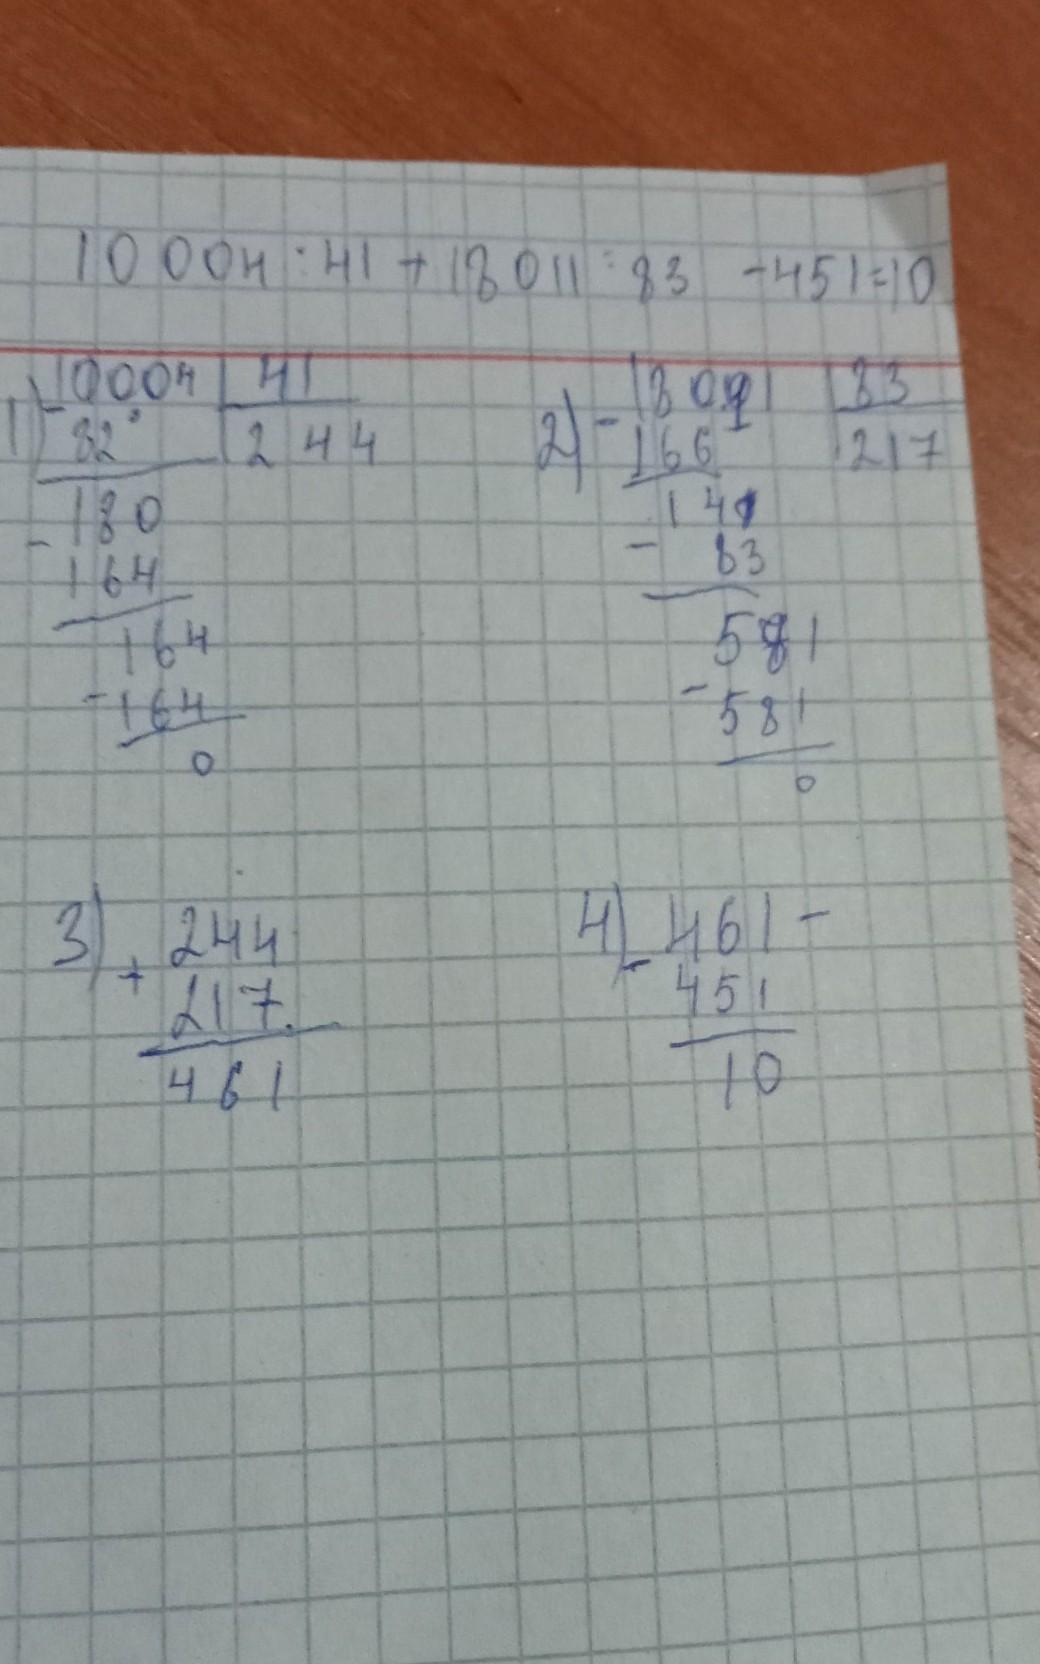 10004:41+18011:83-451=10
1) -10004 | 41
82 | 244
180
-164
164
-164
0
2) -18011 | 83
166 | 217
141
- 83
581
-581
0
3) +244
217
461
4) -461-
451
10